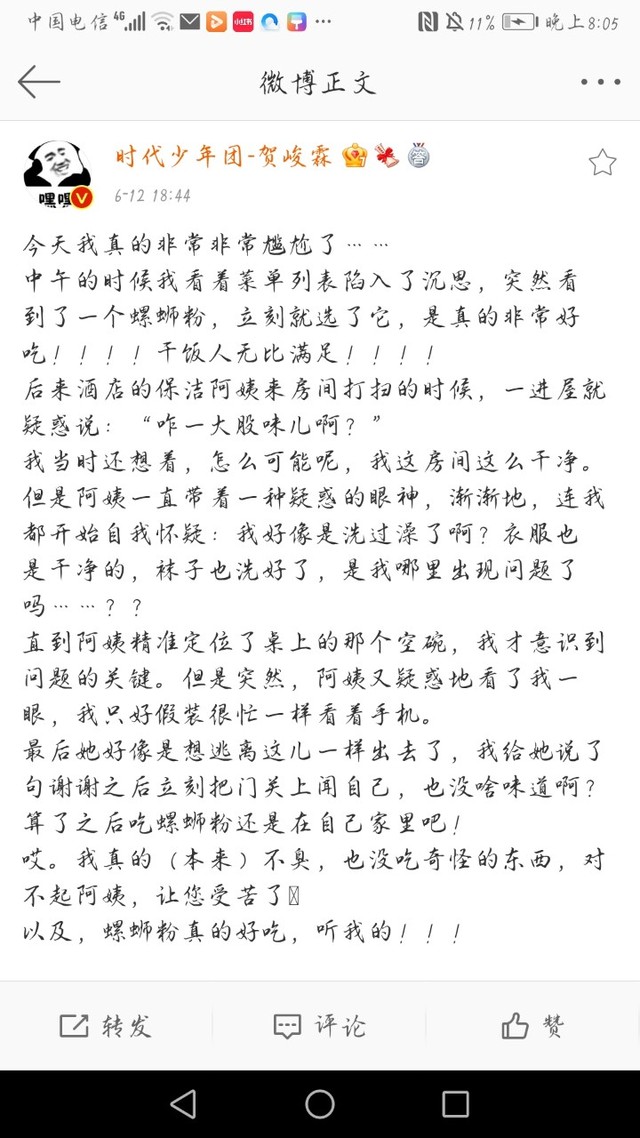 中国电信 4G 11% 晚上8:05
微博正文
时代少年团-贺峻霖
嘿嘿
6-12 18:44
今天我真的非常非常尴尬了……
中午的时候我看着菜单列表陷入了沉思，突然看
到了一个螺蛳粉，立刻就选了它，是真的非常好
吃！！！！干饭人无比满足！！！！
后来酒店的保洁阿姨来房间打扫的时候，一进屋就
疑惑说：“咋一大股味儿啊？”
我当时还想着，怎么可能呢，我这房间这么干净。
但是阿姨一直带着一种疑惑的眼神，渐渐地，连我
都开始自我怀疑：我好像是洗过澡了啊？衣服也
是干净的，袜子也洗好了，是我哪里出现问题了
吗……？？
直到阿姨精准定位了桌上的那个空碗，我才意识到
问题的关键。但是突然，阿姨又疑惑地看了我一
眼，我只好假装很忙一样看着手机。
最后她好像是想逃离这儿一样出去了，我给她说了
句谢谢之后立刻把门关上闻自己，也没啥味道啊？
算了之后吃螺蛳粉还是在自己家里吧！
哎。我真的（本来）不臭，也没吃奇怪的东西，对
不起阿姨，让您受苦了
以及，螺蛳粉真的好吃，听我的！！！
转发 评论 赞